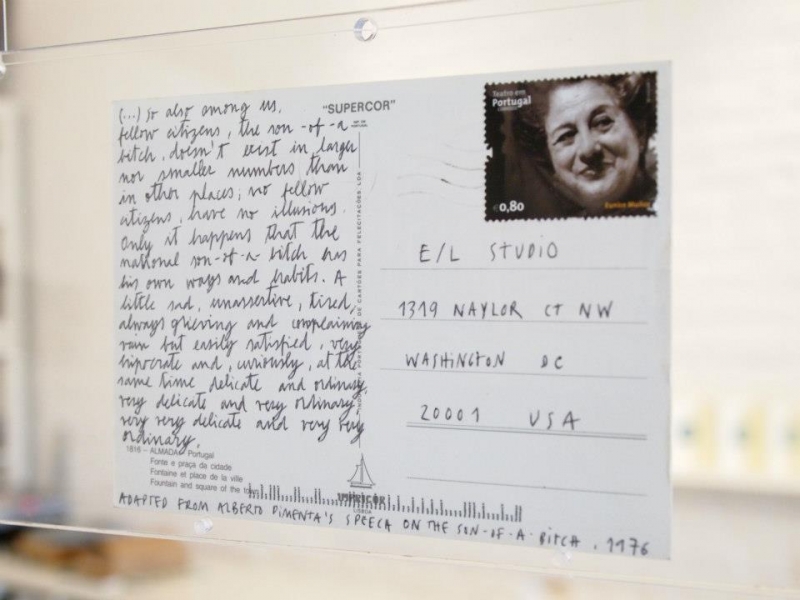 (...) so also among us,
fellow citizens, the son-of-a
bitch, doesn't exist in larger
nor smaller numbers than
in other places; no fellow
citizens, have no illusions.
Only it happens that the
national son-of-a-bitch has
his own ways and habits. A
little sad, unassertive, tired,
always grieving and complaining,
vain but easily satisfied, very
hipocrate and, curiously, at the
same time delicate and ordinary,
very delicate and very ordinary,
very very delicate and very very
ordinary.
1816 – ALMADA – Portugal
Fonte e praça da cidade
Fontaine et place de la ville
Fountain and square of the
ADAPTED FROM ALBERTO PIMENTA'S SPEECH ON THE SON-OF-A-BITCH, 1976
"SUPERCOR"
DE CARTÕES PARA FELICITAÇÕES LDA
SUPERCOR
LISBOA
Teatro em
Portugal
€0,80
Eunice Muñoz
E/L STUDIO
1319 NAYLOR CT NW
WASHINGTON DC
20001 USA